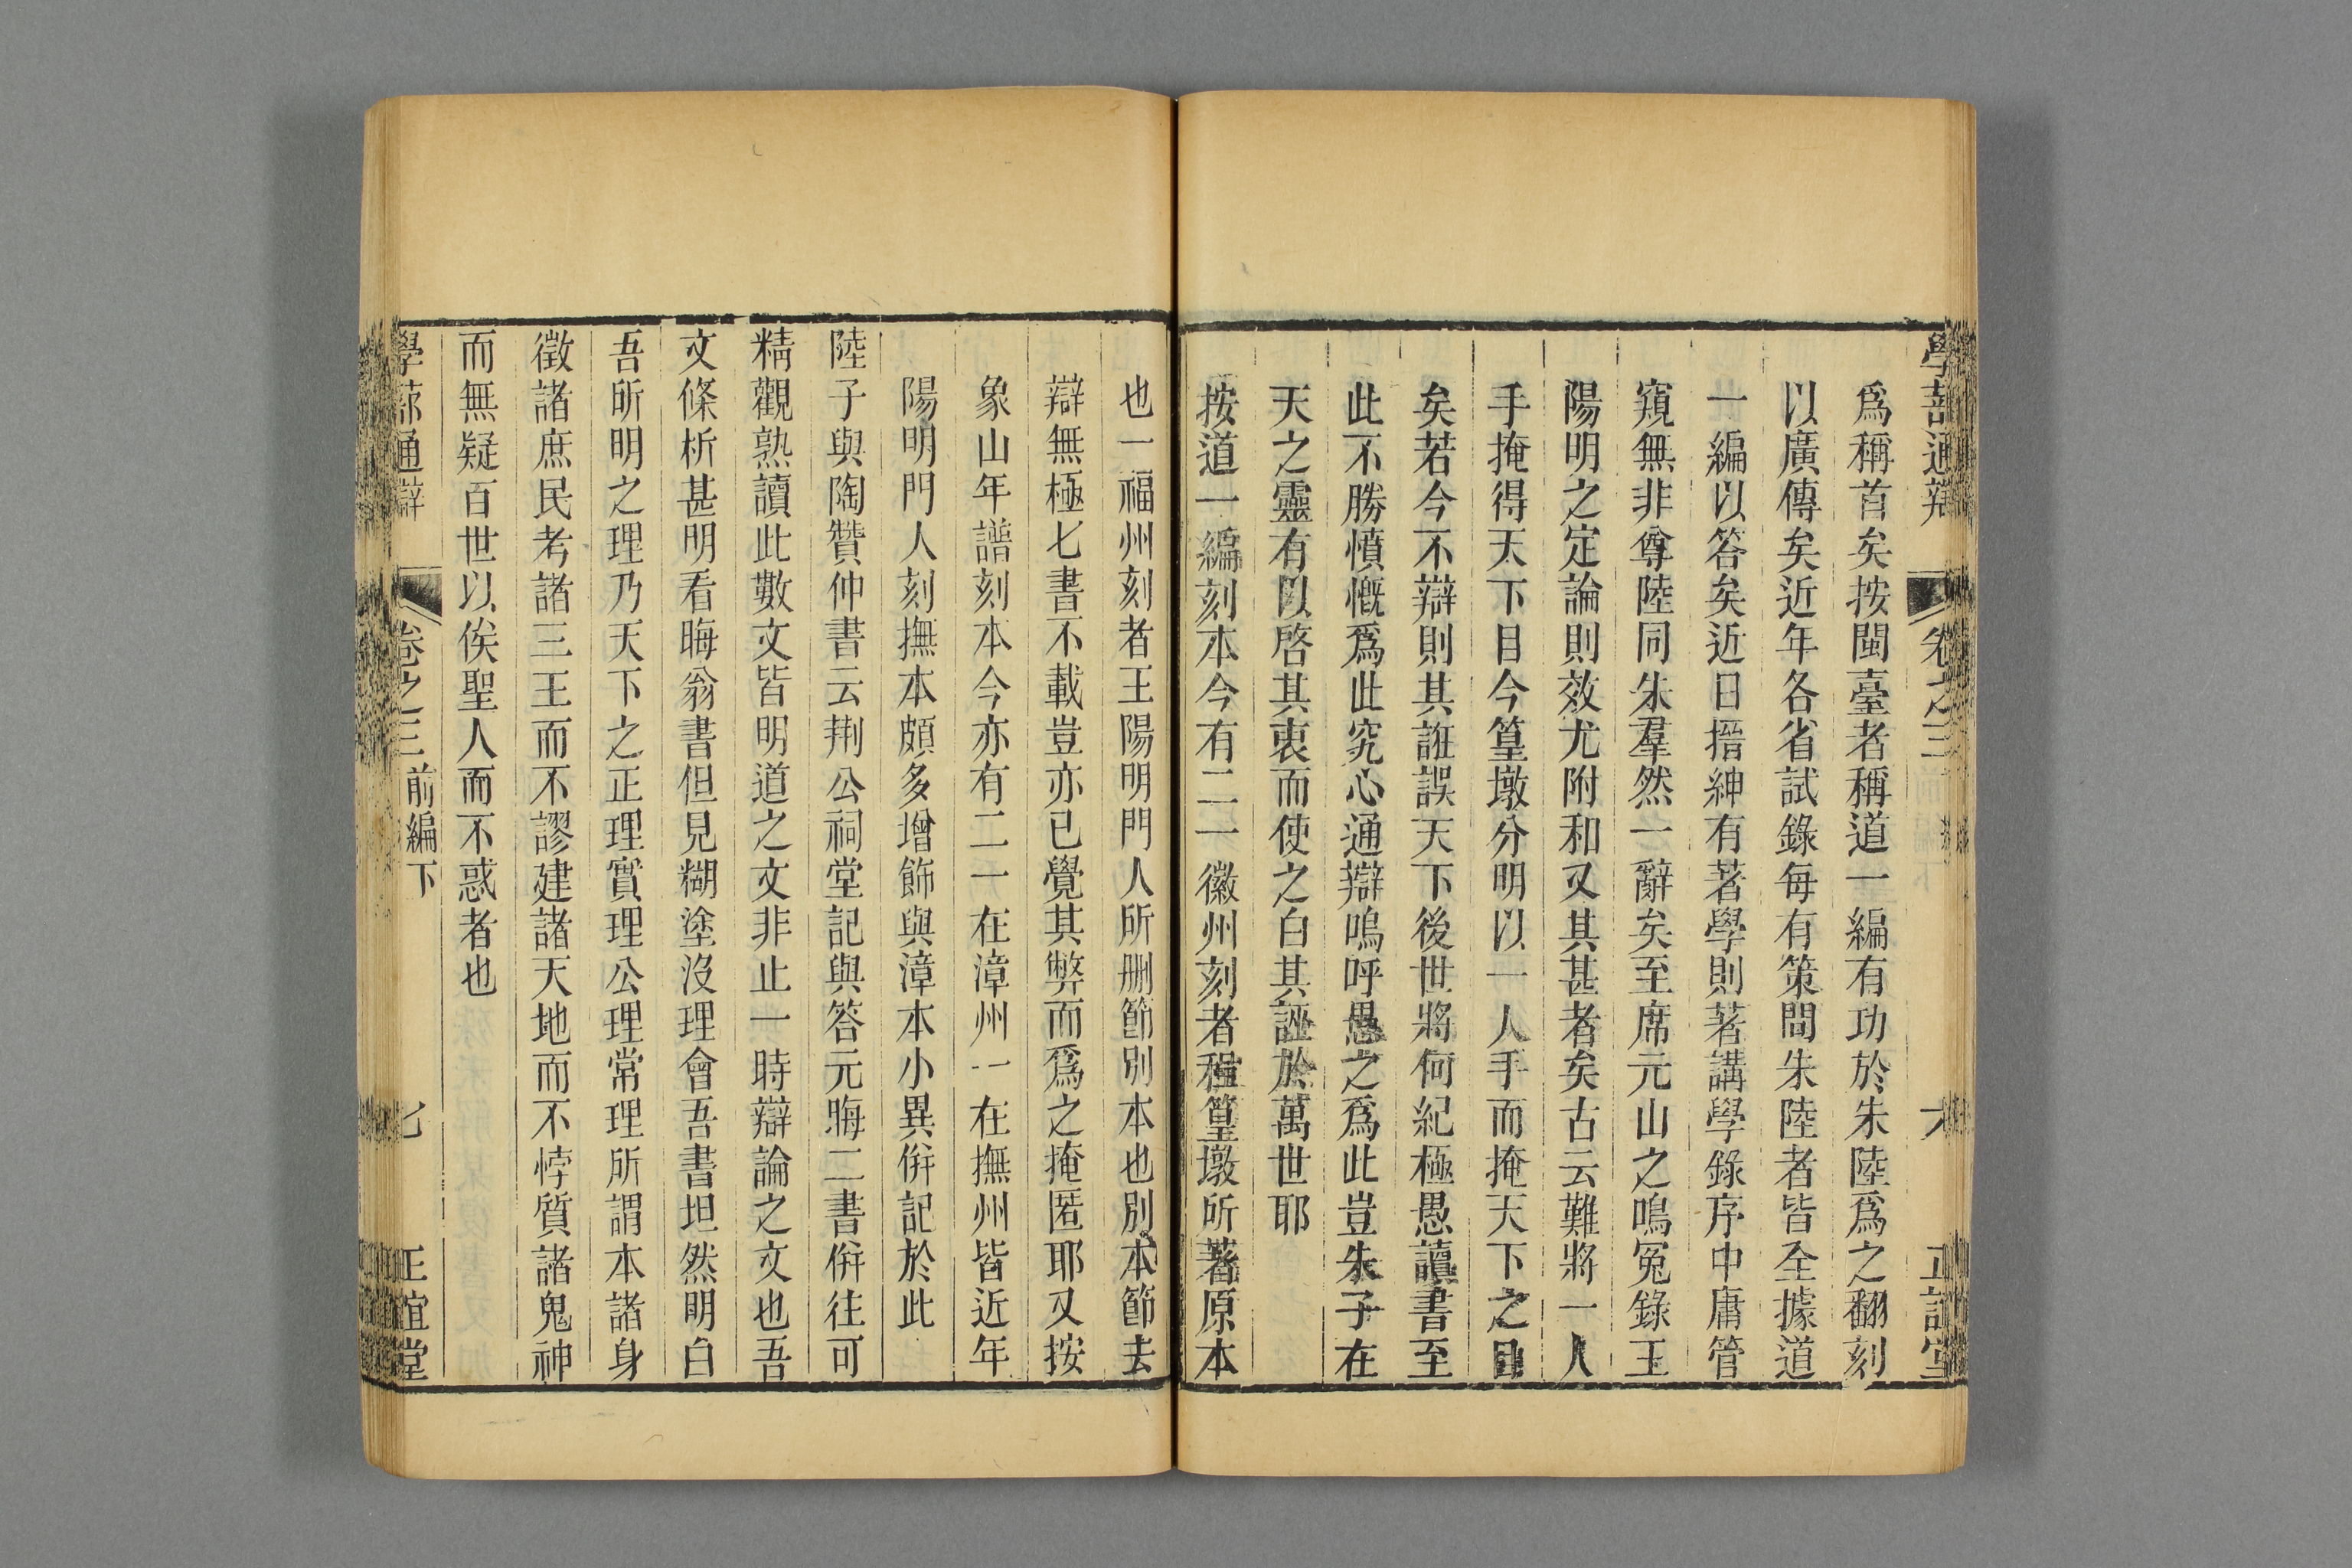 學蔀通辯 卷之三 六 正誼堂
爲稱首矣按閩臺者稱道一編有功於朱陸爲之翻刻
以廣傳矣近年各省試錄每有策問朱陸者皆全據道
一編以答矣近日搢紳有著學則著講學錄序中庸管
窺無非尊陸同朱羣然一辭矣至席元山之鳴冤錄王
陽明之定論則效尤附和又其甚者矣古云難將一人
手掩得天下目今篁墩分明以一人手而掩天下之目
矣若今不辯則其誑誤天下後世將何紀極愚讀書至
此不勝憤慨爲此究心通辯嗚呼愚之爲此豈朱子在
天之靈有以啓其衷而使之白其誣於萬世耶
按道一編刻本今有二一徽州刻者程篁墩所著原本
也一福州刻者王陽明門人所刪節別本也別本節去
辯無極七書不載豈亦已覺其弊而爲之掩匿耶又按
象山年譜刻本今亦有二一在漳州一在撫州皆近年
陽明門人刻撫本頗多增飾與漳本小異併記於此
陸子與陶贊仲書云荆公祠堂記與答元晦二書併往可
精觀熟讀此數文皆明道之文非止一時辯論之文也吾
文條析甚明看晦翁書但見糊塗沒理會吾書坦然明白
吾所明之理乃天下之正理實理公理常理所謂本諸身
徵諸庶民考諸三王而不謬建諸天地而不悖質諸鬼神
而無疑百世以俟聖人而不惑者也
學蔀通辯 卷之三 前編下 七 正誼堂